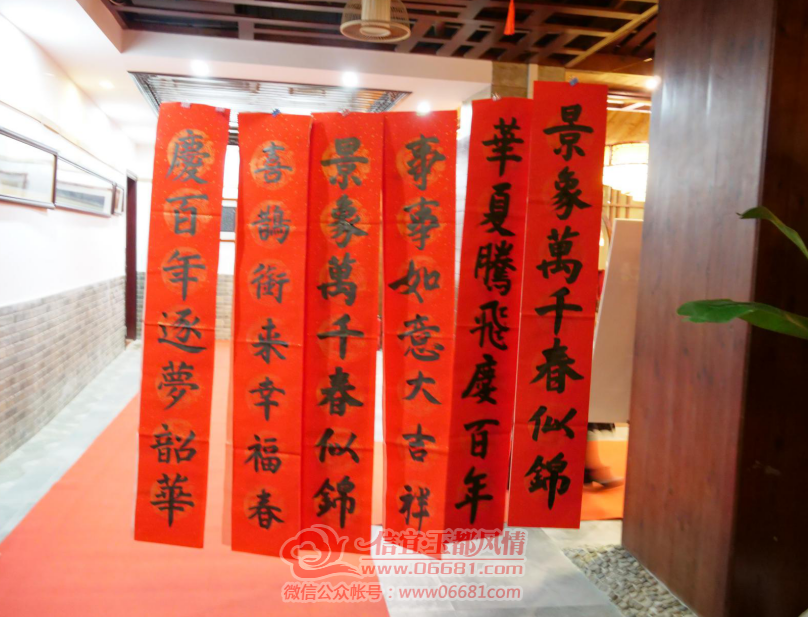 慶百年逐夢韶華
喜鵲銜来幸福春
景象萬千春似錦
事事如意大吉祥
華夏騰飛慶百年
景象萬千春似錦
信宜·玉都风情
www.06681.com
微信公众帐号：www06681com